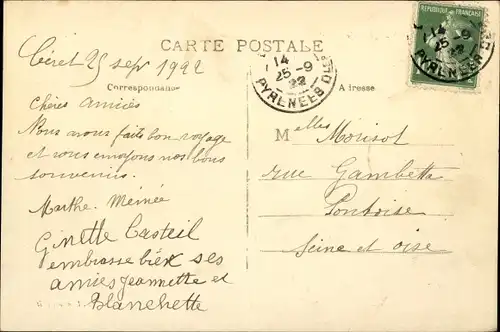 CARTE POSTALE
Céret 25 sep 1922
Correspondance
Chères amies
Nous avons faits bon voyage
et vous envoyons nos bons
souvenirs.
Marthe. Méinée
Ginette Casteil
embrasse bien ses
amies Jeannette et
Blanchette
REPUBLIQUE FRANÇAISE
14
25 - 9
22
PYRENEES
14
25 - 9
22
PYRENEES
Adresse
Melles Morisot
rue Gambetta
Pontoise
Seine et oise